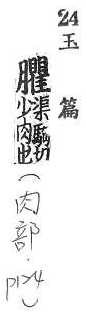 24
玉篇
臞渠驅切少肉也(肉部.p124)